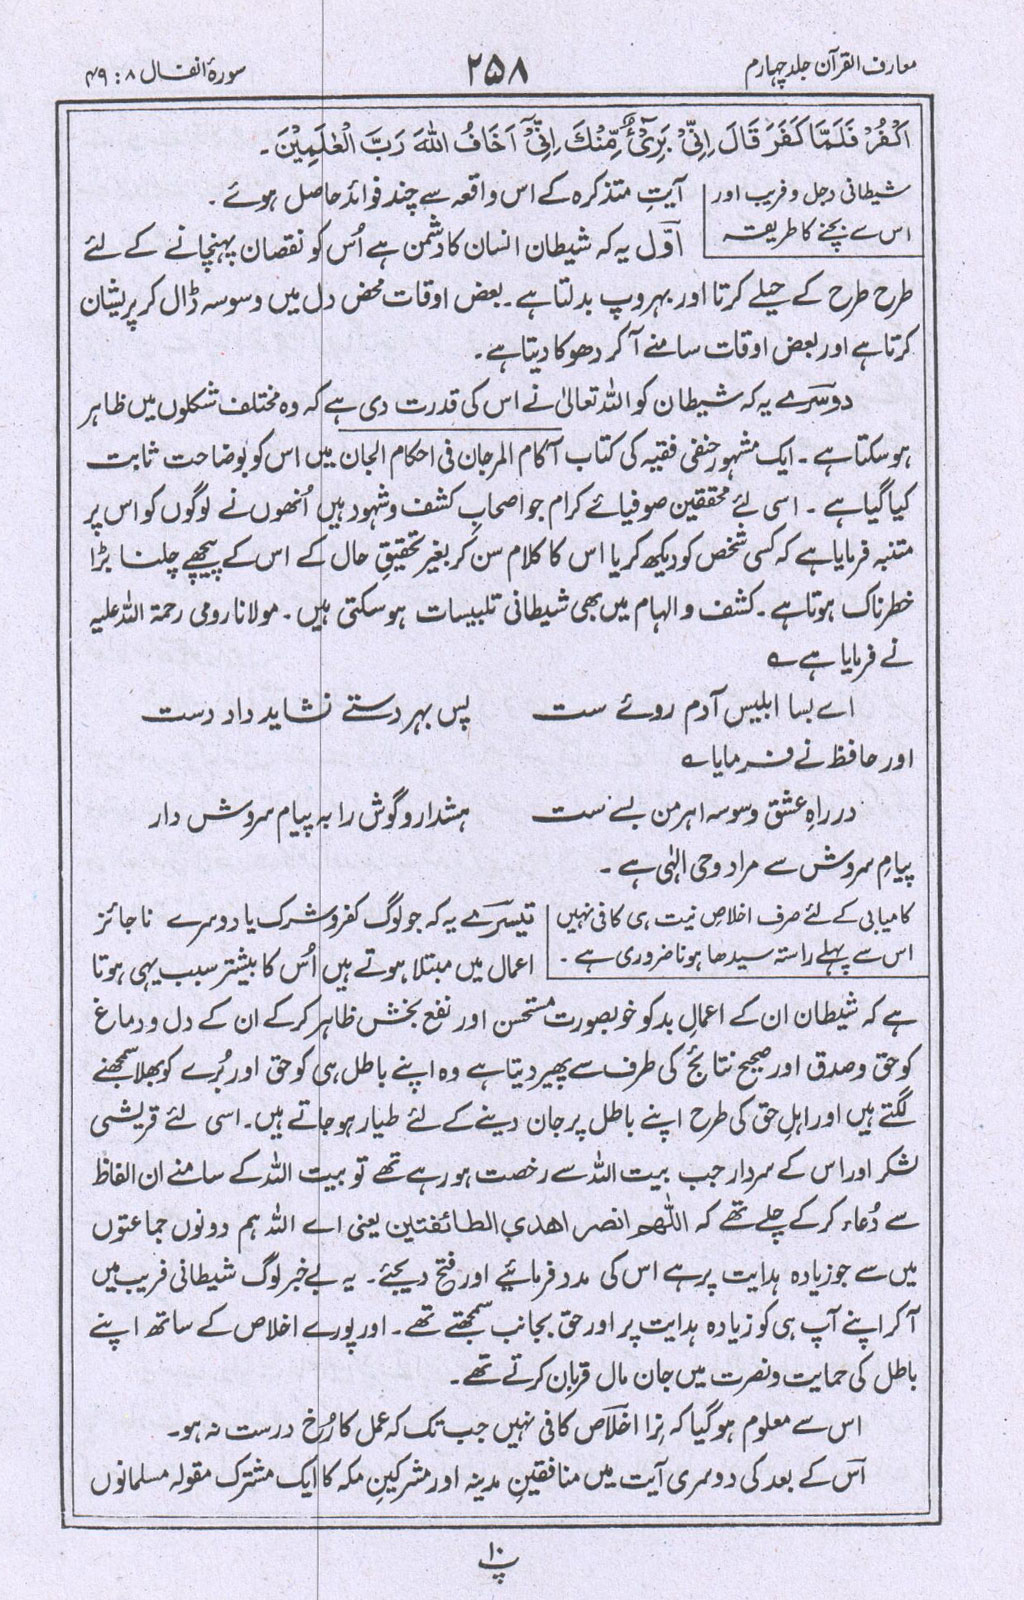 معارف القرآن جلد چہارم
۲۵۸
سورۂ انفال ۸ : ۴۹
اكْفُرْ فَلَمَّا كَفَرَ قَالَ اِنِّىْ بَرِىْٓءٌ مِّنْكَ اِنِّىْٓ اَخَافُ اللهَ رَبَّ الْعٰلَمِيْنَ ۔
شیطانی دجل و فریب اور
اس سے بچنے کا طریقہ
آیتِ متذکرہ کے اس واقعہ سے چند فوائد حاصل ہوئے ۔
اوّل یہ کہ شیطان انسان کا دشمن ہے اُس کو نقصان پہنچانے کے لئے
طرح طرح کے حیلے کرتا اور بہروپ بدلتا ہے ۔ بعض اوقات محض دل میں وسوسہ ڈال کر پریشان
کرتا ہے اور بعض اوقات سامنے آکر دھوکا دیتا ہے ۔
دوسرے یہ کہ شیطان کو اللہ تعالیٰ نے اس کی قدرت دی ہے کہ وہ مختلف شکلوں میں ظاہر
ہو سکتا ہے ۔ ایک مشہور حنفی فقیہ کی کتاب آکام المرجان فی احکام الجان میں اس کو بوضاحت ثابت
کیا گیا ہے ۔ اسی لئے محققین صوفیائے کرام جو اصحابِ کشف و شہود ہیں اُنھوں نے لوگوں کو اس پر
متنبہ فرمایا ہے کہ کسی شخص کو دیکھ کر یا اس کا کلام سن کر بغیر تحقیقِ حال کے اس کے پیچھے چلنا بڑا
خطرناک ہوتا ہے ۔ کشف و الہام میں بھی شیطانی تلبیسات ہو سکتی ہیں ۔ مولانا رومی رحمۃ اللہ علیہ
نے فرمایا ہے ؎
اے بسا ابلیس آدم روئے ست پس بہر دستے نشاید داد دست
اور حافظ نے فرمایا ؎
در راہِ عشق وسوسہ اہرمن بسے ست ہشدار و گوش را بہ پیام سروش دار
پیامِ سروش سے مراد وحی الٰہی ہے ۔
کامیابی کے لئے صرف اخلاصِ نیت ہی کافی نہیں
اس سے پہلے راستہ سیدھا ہونا ضروری ہے ۔
تیسرے یہ کہ جو لوگ کفر و شرک یا دوسرے ناجائز
اعمال میں مبتلا ہوتے ہیں اُس کا بیشتر سبب یہی ہوتا
ہے کہ شیطان ان کے اعمالِ بد کو خوبصورت مستحسن اور نفع بخش ظاہر کر کے ان کے دل و دماغ
کو حق و صدق اور صحیح نتائج کی طرف سے پھیر دیتا ہے وہ اپنے باطل ہی کو حق اور بُرے کو بھلا سمجھنے
لگتے ہیں اور اہلِ حق کی طرح اپنے باطل پر جان دینے کے لئے طیار ہو جاتے ہیں۔ اسی لئے قریشی
لشکر اور اس کے سردار جب بیت اللہ سے رخصت ہو رہے تھے تو بیت اللہ کے سامنے ان الفاظ
سے دُعاء کر کے چلے تھے کہ اللّٰھم انصر اھدی الطائفتین یعنی اے اللہ ہم دونوں جماعتوں
میں سے جو زیادہ ہدایت پر ہے اس کی مدد فرمائیے اور فتح دیجئے ۔ یہ بے خبر لوگ شیطانی فریب میں
آکر اپنے آپ ہی کو زیادہ ہدایت پر اور حق بجانب سمجھتے تھے ۔ اور پورے اخلاص کے ساتھ اپنے
باطل کی حمایت و نصرت میں جان مال قربان کرتے تھے ۔
اس سے معلوم ہو گیا کہ نرا اخلاص کافی نہیں جب تک کہ عمل کا رُخ درست نہ ہو۔
اس کے بعد کی دوسری آیت میں منافقینِ مدینہ اور مشرکینِ مکہ کا ایک مشترک مقولہ مسلمانوں
پ ۱۰